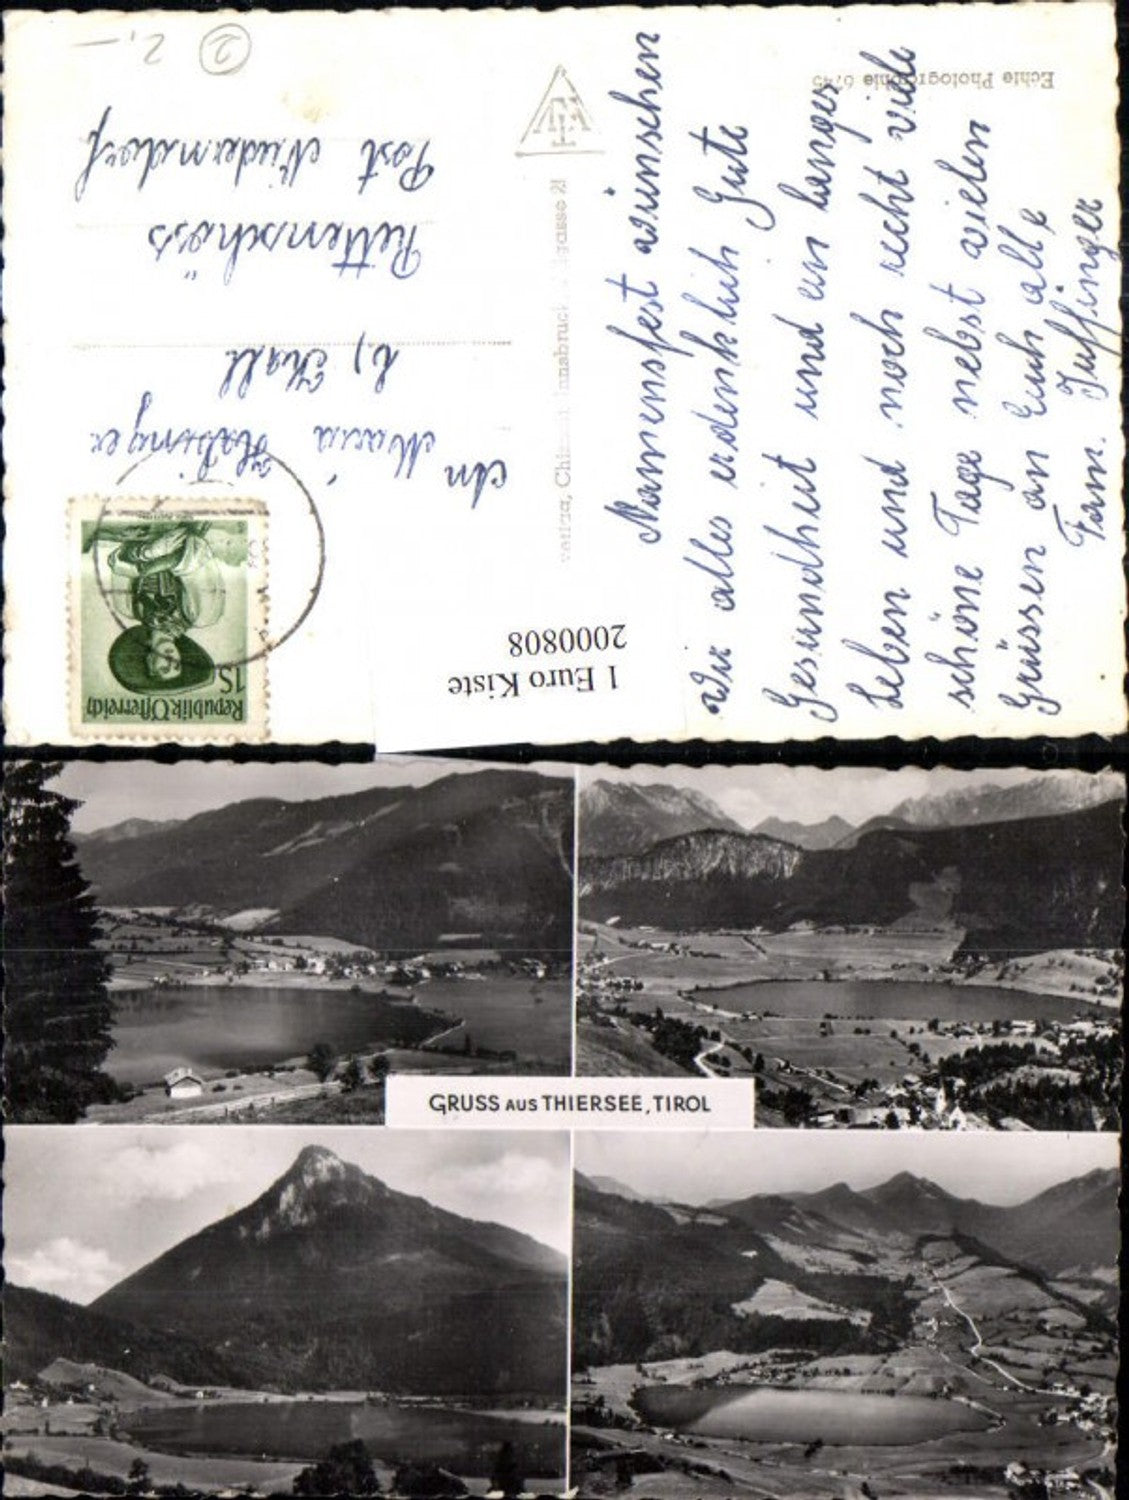 2
2,-
Echte Photographie 6745
Namensfest wünschen
Wir alles erdenklich Gute
Gesundheit und ein langes
Leben und noch recht viele
schöne Tage nebst vielen
Grüssen an Euch alle
Fam. Juffinger
Innsbruck
An
Maria
b)
Rettenschöss
Post Niederndorf
Republik Österreich
1S
1 Euro Kiste
2000808
GRUSS AUS THIERSEE, TIROL